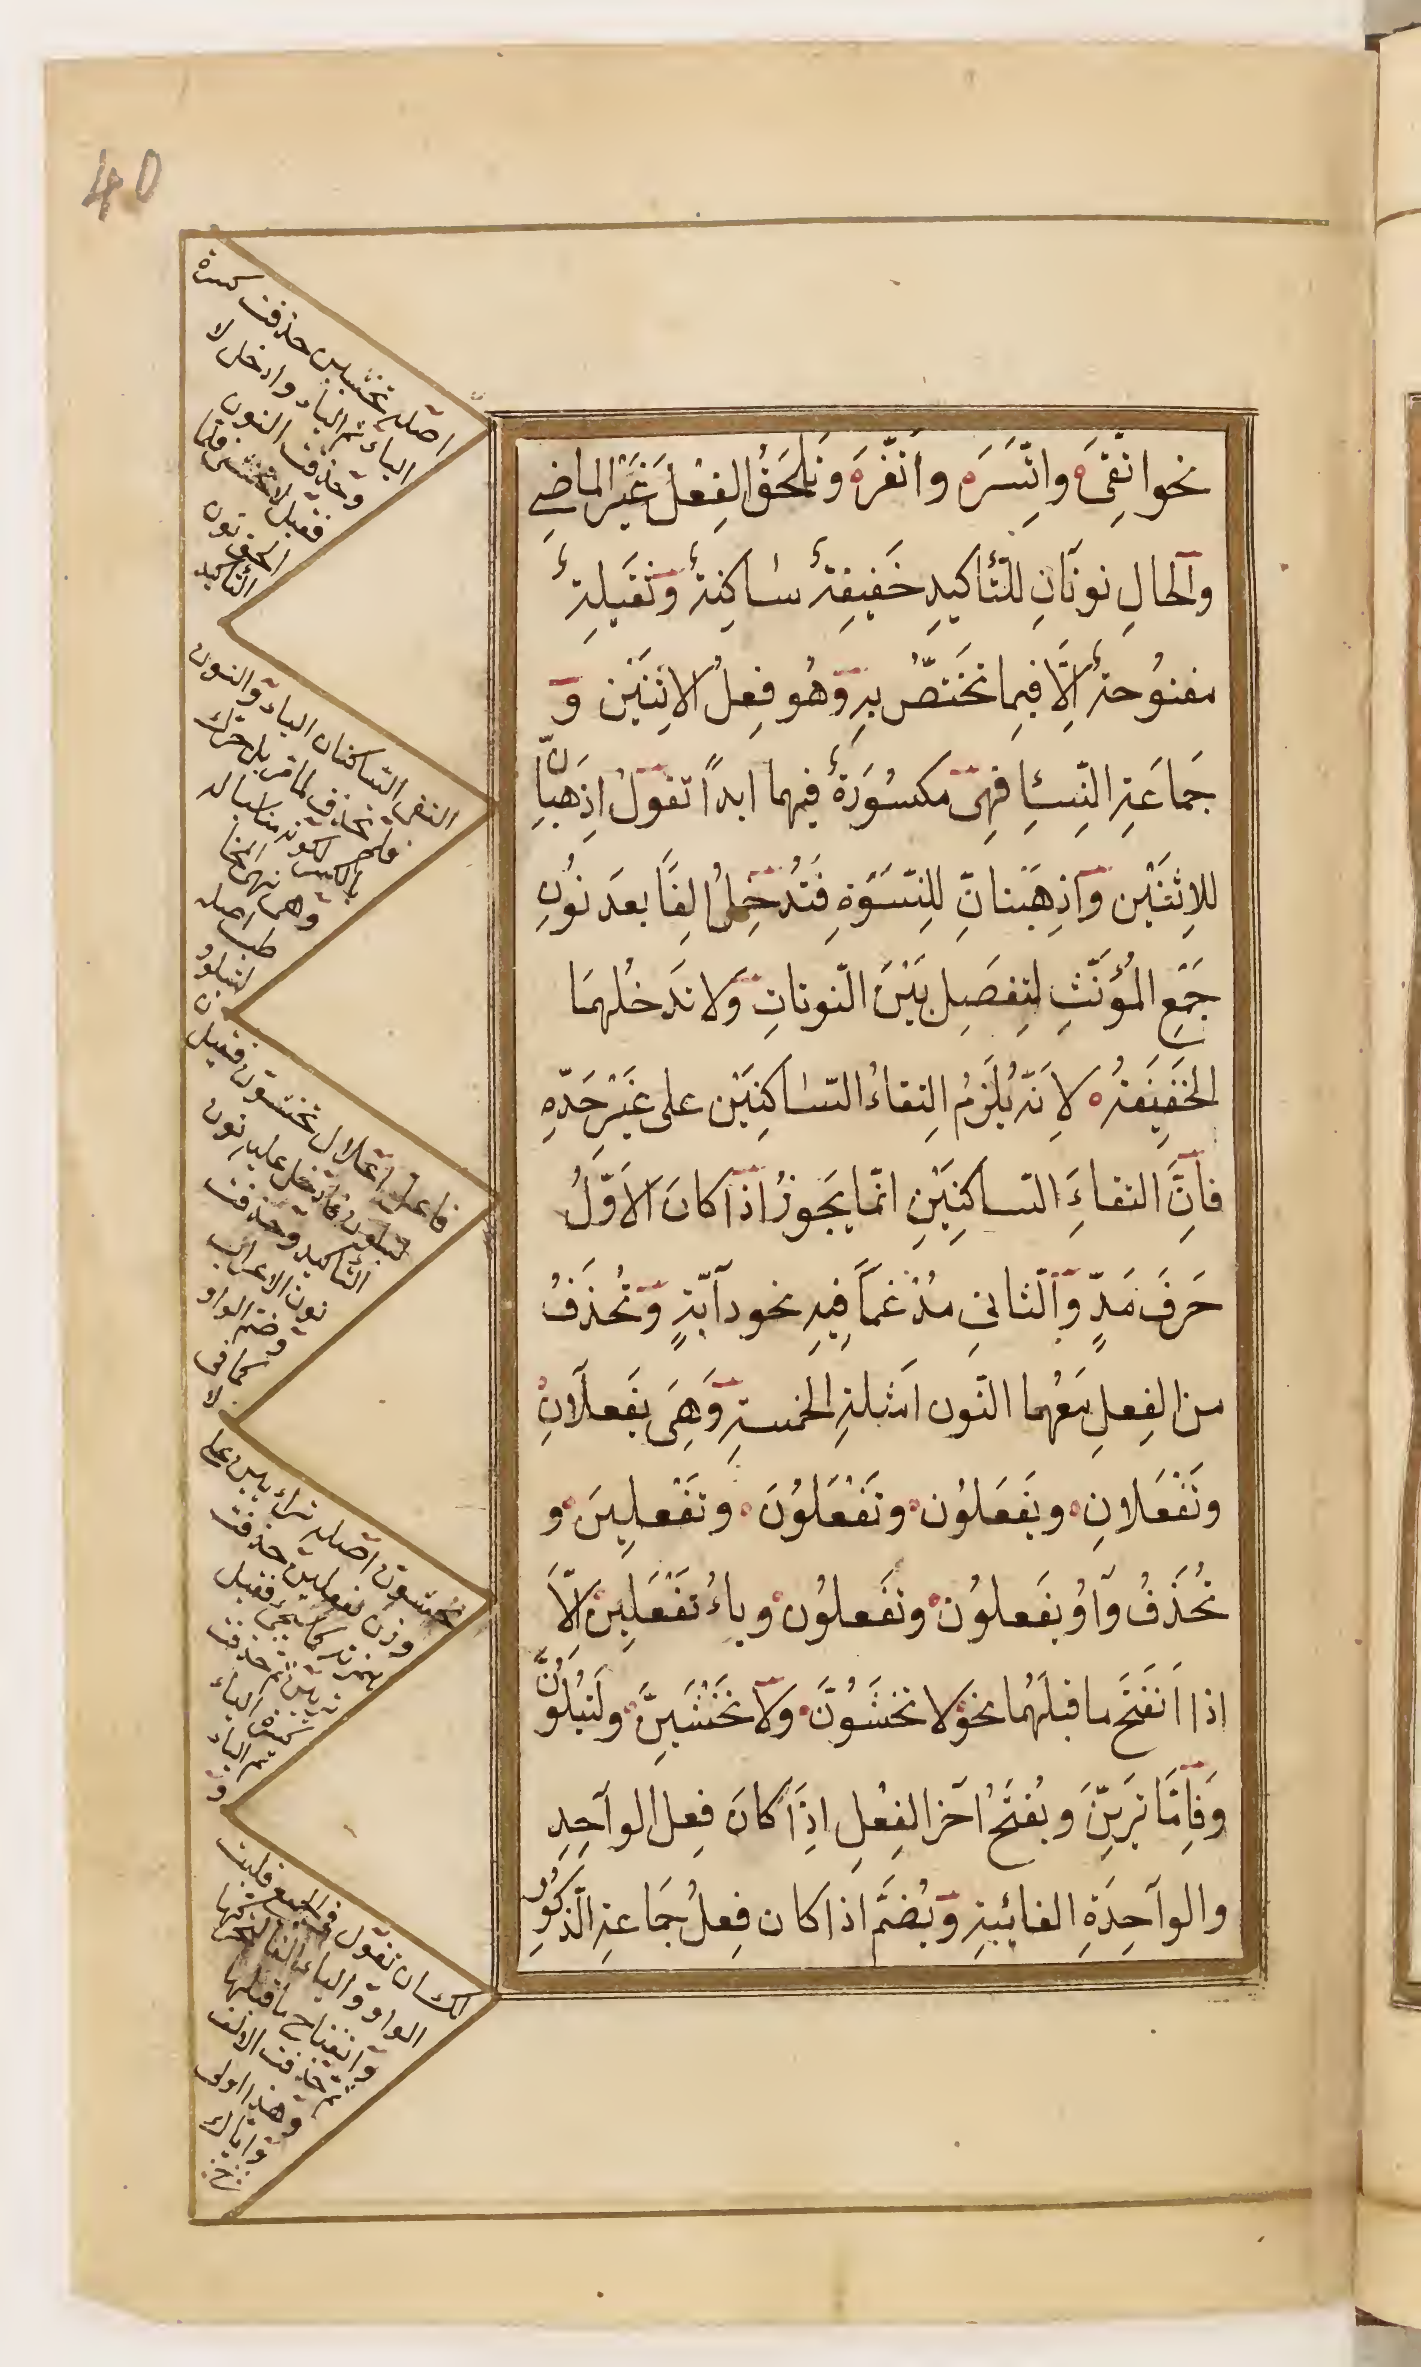 40
نحو اتَّقَى واتَّسَرَ واتَّغَرَ وتَلحَقُ الفِعْلَ غَيْرَ الماضِي
وَالحالِ نونَانِ للتَّأكيدِ خَفيفِةٌ سٰاكِنِةٌ وَثَقيلِةٌ
مفتوُحةٌ اِلَّا فيِما تَختَصُّ بهِ وَهُو فِعلُ الاثِنَيْن وَ
جَماعَةِ النِّساءِ فهِىَ مكسُورَةٌ فيهما ابداً تَقوَلُ اِذهَبٰانِّ
للاِثنَيْن وَاذِهَبْنانِّ للِنّسَوةِ فَتُدْخِلُ الِفًا بعدَ نوُنِ
جَمْعِ المُؤنَّثِ لتِفصَلِ بَيْنَ النّوناتِ وَلا تَدخُلهمَا
الخَفَيِفَةُ لاِنَّهُ يُلَزمُ اِلتِقاءُ السّٰاكِنيَن على غَيْرِ حَدّهِ
فَاِنَّ التقاءَ السّاكِنَيْنِ انّما يَجوزُ اذَا كانَ الاَوّلُ
حَرفَ مَدٍّ وَالثّاني مُدْغَماً فِيهِ نحو دآبّةٍ وَتُحذَفُ
من الفِعلِ مَعَهُما النّون امَثِلةِ الخمسةِ وَهِىَ يَفعَلَانِ
وتَفْعَلانِ ويَفَعَلوُن وتَفْعَلوُنَ وتَفْعلِينَ و
تُحذَفُ وَاوُ يَفعلوُن وتَفعلوُن وياءُ تَفْعَلِين اِلّا
اذا انَفَتَح ما قبلَهُما نحو لا تخشَوُنَّ وَلا تَخْشَيِنَّ ولَتبُلَوُنَّ
وَفَاِمَّا تَرَيِنَّ ويُفتَحُ آخر الفِعْلِ اذِا كانَ فِعل الواحِدِ
والواحِدَةِ الغائبةِ وَيُضَمَّ اذا كان فِعلُ جَماعةِ الذّكوُرِ
اصله تخشيين حذفت كسرة
الياء ثم الياء وادخل لا
وحذفت النون
فقيل لا تخشى فلما
الحق نون
التأكيد
التقى الساكنان الياء والنون
فلم تحذف لما مر بل حرك
بالكسر لكونه مناسبا له
وهما نهى المخا
طب اصله
لتبلوو
ن
فاعل اعلال تخشون فقيل
لتبلون فادخل عليه نون
التأكيد وحذفت
نون الاعراب
وضم الواو
كما في
لا
تخشون اصله ترايين على
وزن تفعلين حذفت
همزته كما يجئ فقيل
تريين ثم حذفت
كسرة الياء
ثم الياء
و
لك ان تقول في الجميع قلبت
الواو والياء الفا لتحركها
وانفتاح ما قبلها
ثم حذفت الالف
وهذا اولى
واياك